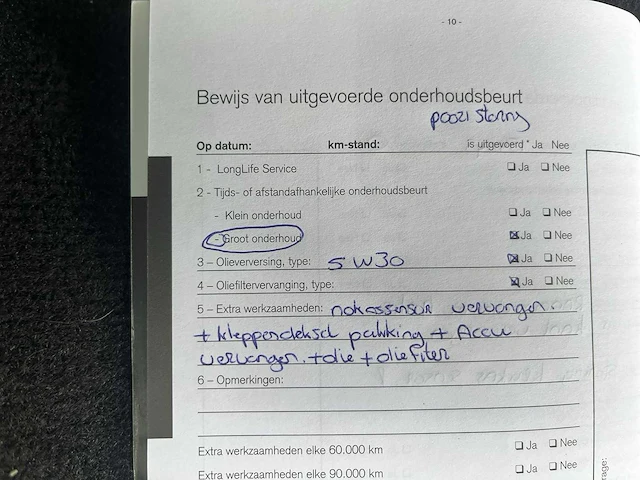 - 10 -
Bewijs van uitgevoerde onderhoudsbeurt
Op datum: km-stand: is uitgevoerd * Ja Nee
1 - LongLife Service ❏ Ja ❏ Nee
2 - Tijds- of afstandafhankelijke onderhoudsbeurt
- Klein onderhoud ❏ Ja ❏ Nee
- Groot onderhoud ☒ Ja ❏ Nee
3 – Olieverversing, type: 5W30 ☒ Ja ❏ Nee
4 – Oliefiltervervanging, type: ☒ Ja ❏ Nee
5 – Extra werkzaamheden: nokassensor vervangen.
+ kleppendeksel pakking + Accu
vervangen. + olie + olie filter
6 – Opmerkingen:
Extra werkzaamheden elke 60.000 km ❏ Ja ❏ Nee
Extra werkzaamheden elke 90.000 km ❏ Ja ❏ Nee